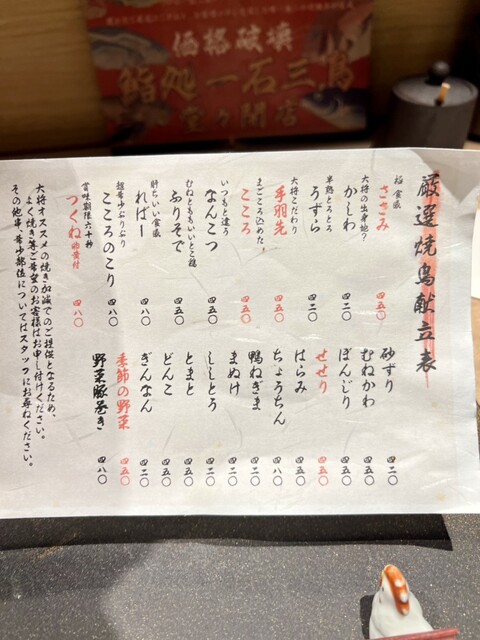 価格破壊
鮨処 一石三鳥
堂々開店
厳選焼鳥献立表
極食感
ささみ 四五〇
大将の出身地?
かしわ 四二〇
半熟とろとろ
うずら 四二〇
大将こだわり
手羽先 四五〇
まごころ込めた!
こころ 四五〇
いつもと違う
なんこつ 四五〇
むねとももいいとこ穫
ふりそで 四五〇
肝ちいい食感
ればー 四八〇
超希少ぷりぷり
こころのこり 四八〇
賞味期限六十秒
つくね 卵黄付 四八〇
砂ずり 四二〇
むねかわ 四五〇
ぼんじり 四二〇
せせり 四五〇
はらみ 四五〇
ちょうちん 四八〇
鴨ねぎま 四二〇
まぬけ 四二〇
ししとう 四二〇
とまと 四五〇
どんこ 四五〇
ぎんなん 四二〇
季節の野菜 四五〇
野菜豚巻き 四八〇
大将オススメの焼き加減でのご提供となるため、
よく焼き等ご希望のお客様はお申し付けください。
その他串、希少部位についてはスタッフにお尋ねください。